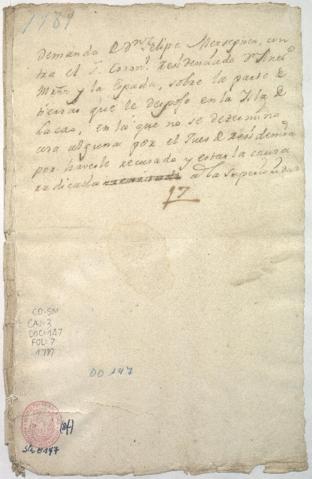 1789
Demanda de Dn Felipe Mersepena, con
tra el S. Coronl. Residenciado Dn
Mrñ y la Espada, sobre la parte de
tierras que le despojo en la Isla de
Cacas, en la que no se determina
cosa alguna por el Juez de residencia
por haverle recusado y estar la causa
radicada a la Superioridad
17
CO-SM
CAJ-3
DOC-147
FOL-7
1789
DO 147
(7f)